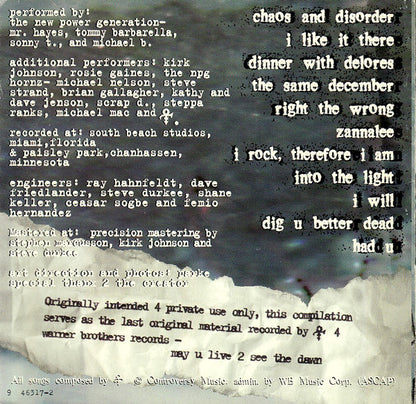 performed by:
the new power generation-
mr. hayes, tommy barbarella,
sonny t., and michael b.
additional performers: kirk
johnson, rosie gaines, the npg
horns- michael nelson, steve
strand, brian gallagher, kathy and
dave jenson, scrap d., steppa
ranks, michael mac and .
recorded at: south beach studios,
miami,florida
& paisley park,chanhassen,
minnesota
engineers: ray hahnfeldt, dave
friedlander, steve durkee, shane
keller, ceasar sogbe and femio
hernandez
Mastered at: precision mastering by
stephen marcusson, kirk johnson and
steve durkee
art direction and photos: parke
special thanx 2 the creator
chaos and disorder
i like it there
dinner with delores
the same december
right the wrong
zannalee
i rock, therefore i am
into the light
i will
dig u better dead
had u
Originally intended 4 private use only, this compilation
serves as the last original material recorded by 4
warner brothers records -
may u live 2 see the dawn
All songs composed by © Controversy Music. admin. by WB Music Corp. (ASCAP)
9 46317-2